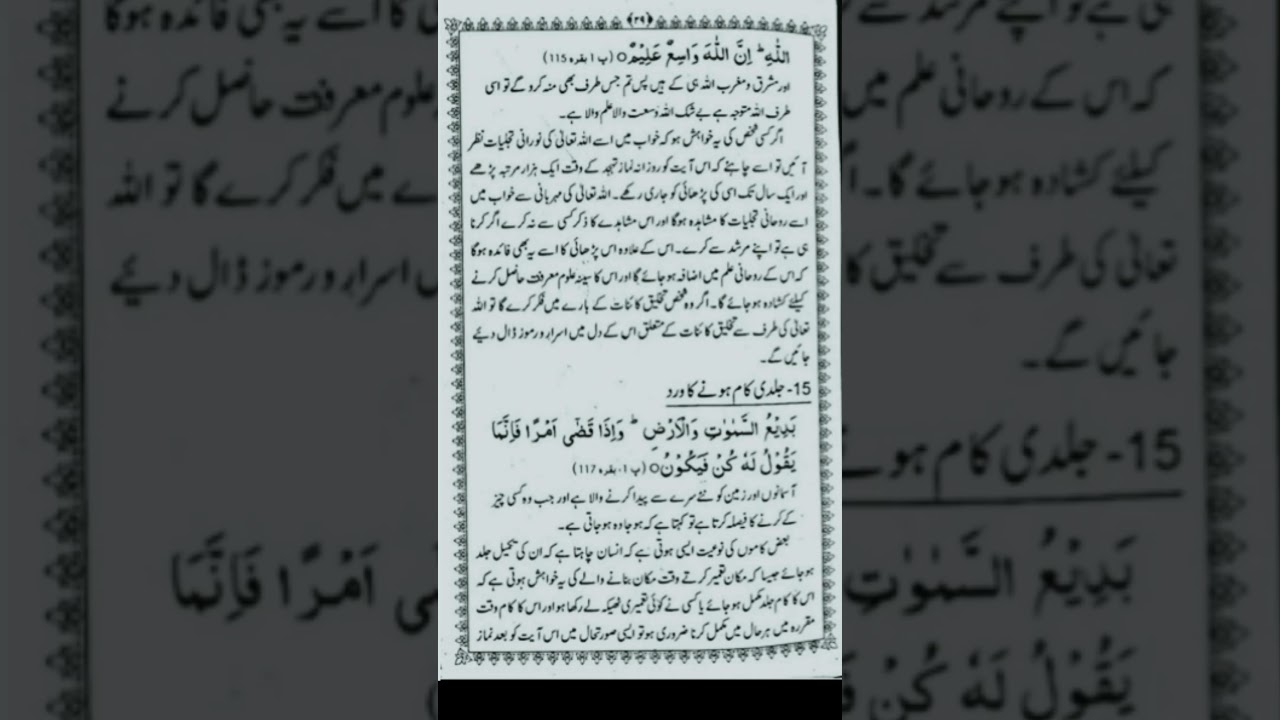 ﴿۲۹﴾
اللّٰهِ ؕ اِنَّ اللّٰهَ وَاسِعٌ عَلِيْمٌ○ (پ ۱ بقرہ 115)
اور مشرق و مغرب اللہ ہی کے ہیں پس تم جس طرف بھی منہ کرو گے تو اسی
طرف اللہ متوجہ ہے بے شک اللہ وسعت والا علم والا ہے۔
اگر کسی شخص کی یہ خواہش ہو کہ خواب میں اسے اللہ تعالیٰ کی نورانی تجلیات نظر
آئیں تو اسے چاہئے کہ اس آیت کو روزانہ نماز تہجد کے وقت ایک ہزار مرتبہ پڑھے
اور ایک سال تک اسی کی پڑھائی کو جاری رکھے۔ اللہ تعالیٰ کی مہربانی سے خواب میں
اسے روحانی تجلیات کا مشاہدہ ہوگا اور اس مشاہدے کا ذکر کسی سے نہ کرے اگر کرنا
ہی ہے تو اپنے مرشد سے کرے۔ اس کے علاوہ اس پڑھائی کا اسے یہ بھی فائدہ ہوگا
کہ اس کے روحانی علم میں اضافہ ہو جائے گا اور اس کا سینہ علوم معرفت حاصل کرنے
کیلئے کشادہ ہو جائے گا۔ اگر وہ شخص تخلیق کائنات کے بارے میں فکر کرے گا تو اللہ
تعالیٰ کی طرف سے تخلیق کائنات کے متعلق اس کے دل میں اسرار و رموز ڈال دیئے
جائیں گے۔
15- جلدی کام ہونے کا ورد
بَدِيْعُ السَّمٰوٰتِ وَالْاَرْضِ ؕ وَاِذَا قَضٰٓى اَمْرًا فَاِنَّمَا
يَقُوْلُ لَهٗ كُنْ فَيَكُوْنُ○ (پ ۱- بقرہ 117)
آسمانوں اور زمین کو نئے سرے سے پیدا کرنے والا ہے اور جب وہ کسی چیز
کے کرنے کا فیصلہ کرتا ہے تو کہتا ہے کہ ہو جا وہ ہو جاتی ہے۔
بعض کاموں کی نوعیت ایسی ہوتی ہے کہ انسان چاہتا ہے کہ ان کی تکمیل جلد
ہو جائے جیسا کہ مکان تعمیر کرتے وقت مکان بنانے والے کی یہ خواہش ہوتی ہے کہ
اس کا کام جلد مکمل ہو جائے یا کسی نے کوئی تعمیری ٹھیکہ لے رکھا ہو اور اس کا کام وقت
مقررہ میں ہر حال میں مکمل کرنا ضروری ہو تو ایسی صورتحال میں اس آیت کو بعد نماز